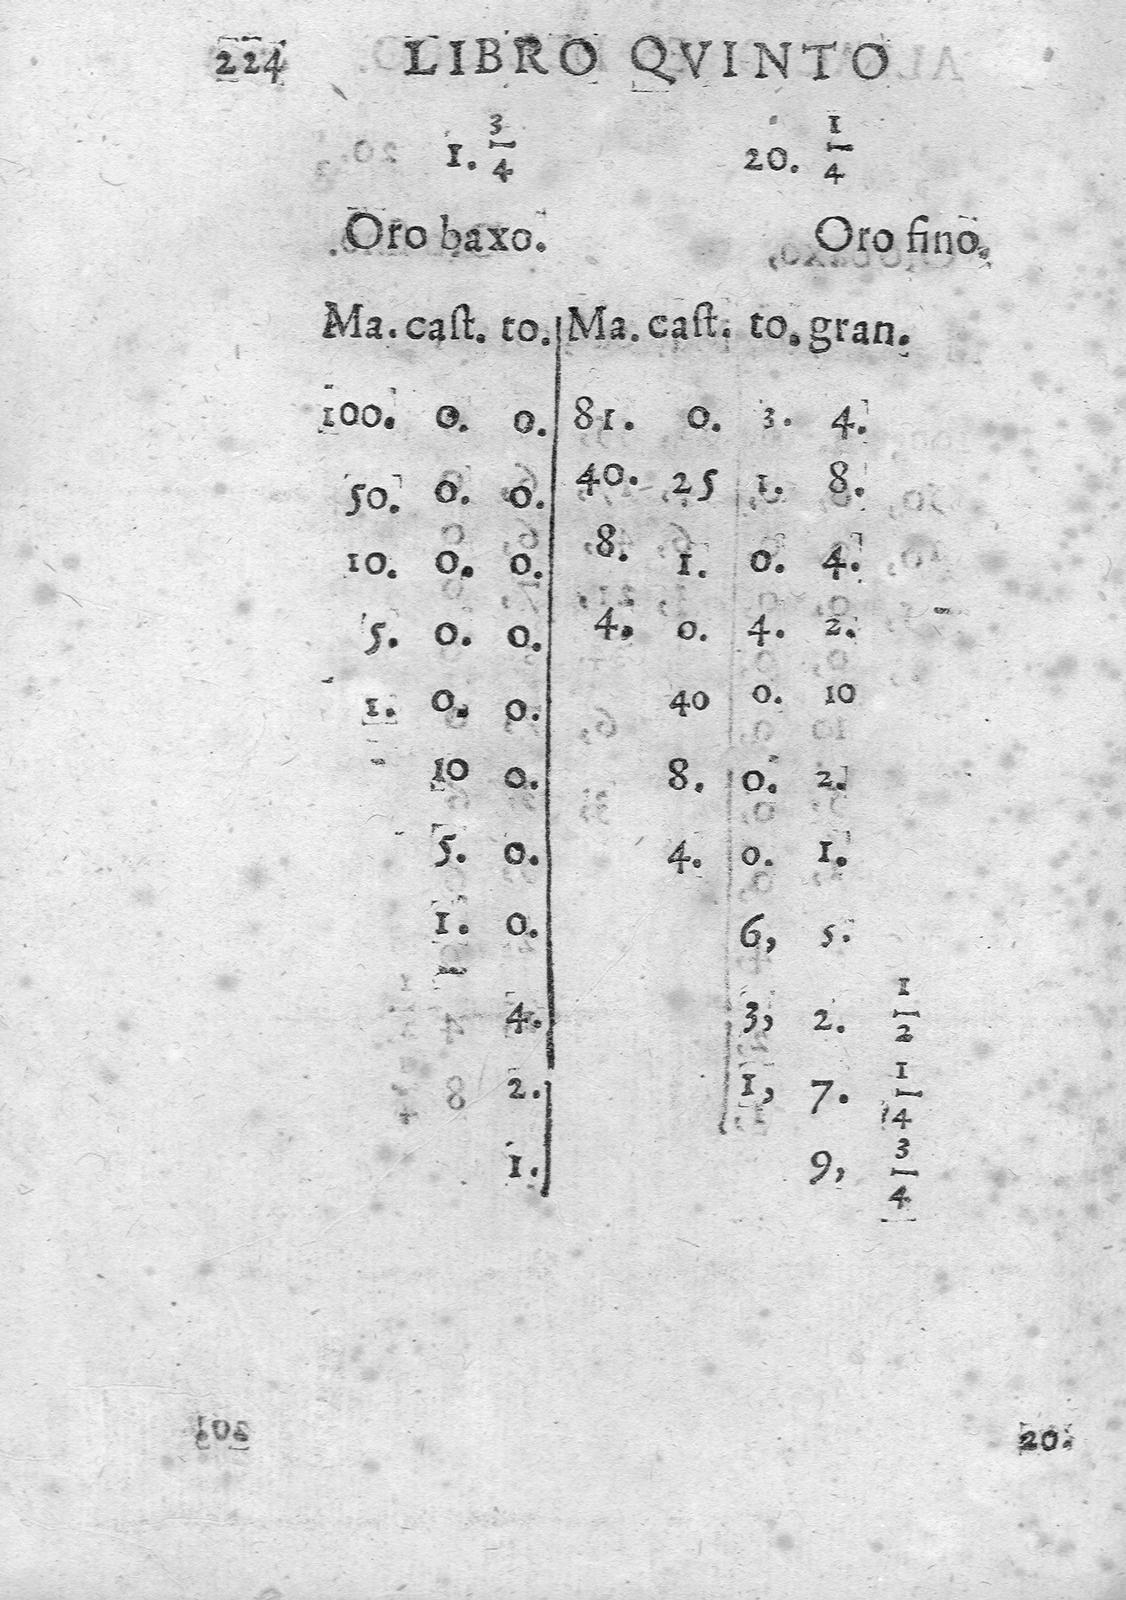 224 LIBRO QVINTO
1. 3/4 20. 1/4
Oro baxo. Oro fino.
Ma. caſt. to. Ma. caſt. to. gran.
100. 0. 0. 81. 0. 3. 4.
50. 0. 0. 40. 25 1. 8.
10. 0. 0. 8. 1. 0. 4.
5. 0. 0. 4. 0. 4. 2.
1. 0. 0. 40 0. 10
10 0. 8. 0. 2.
5. 0. 4. 0. 1.
1. 0. 6, 5.
4. 3, 2. 1/2
2. 1, 7. 1/4
1. 9, 3/4
20.